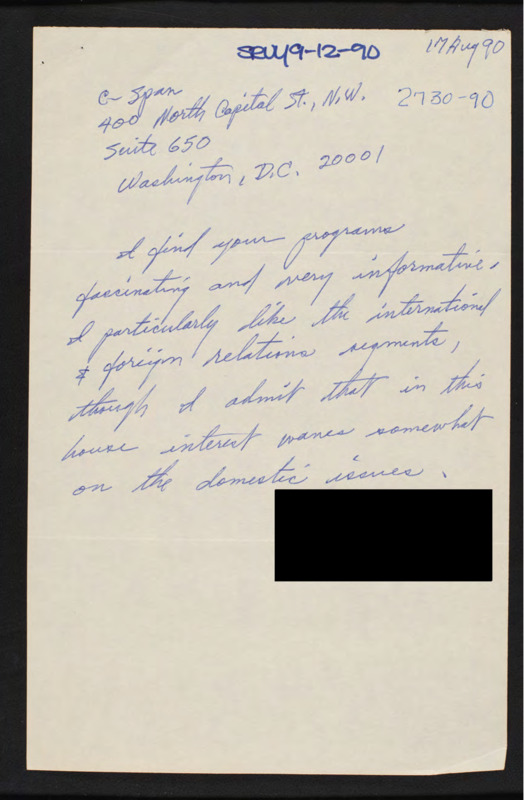 9-12-90
17 Aug 90
C-Span
400 North Capital St., N.W.
2730-90
Suite 650
Washington, D.C. 20001
I find your programs
fascinating and very informative.
I particularly like the international
& foreign relations segments,
though I admit that in this
house interest wanes somewhat
on the domestic issues.